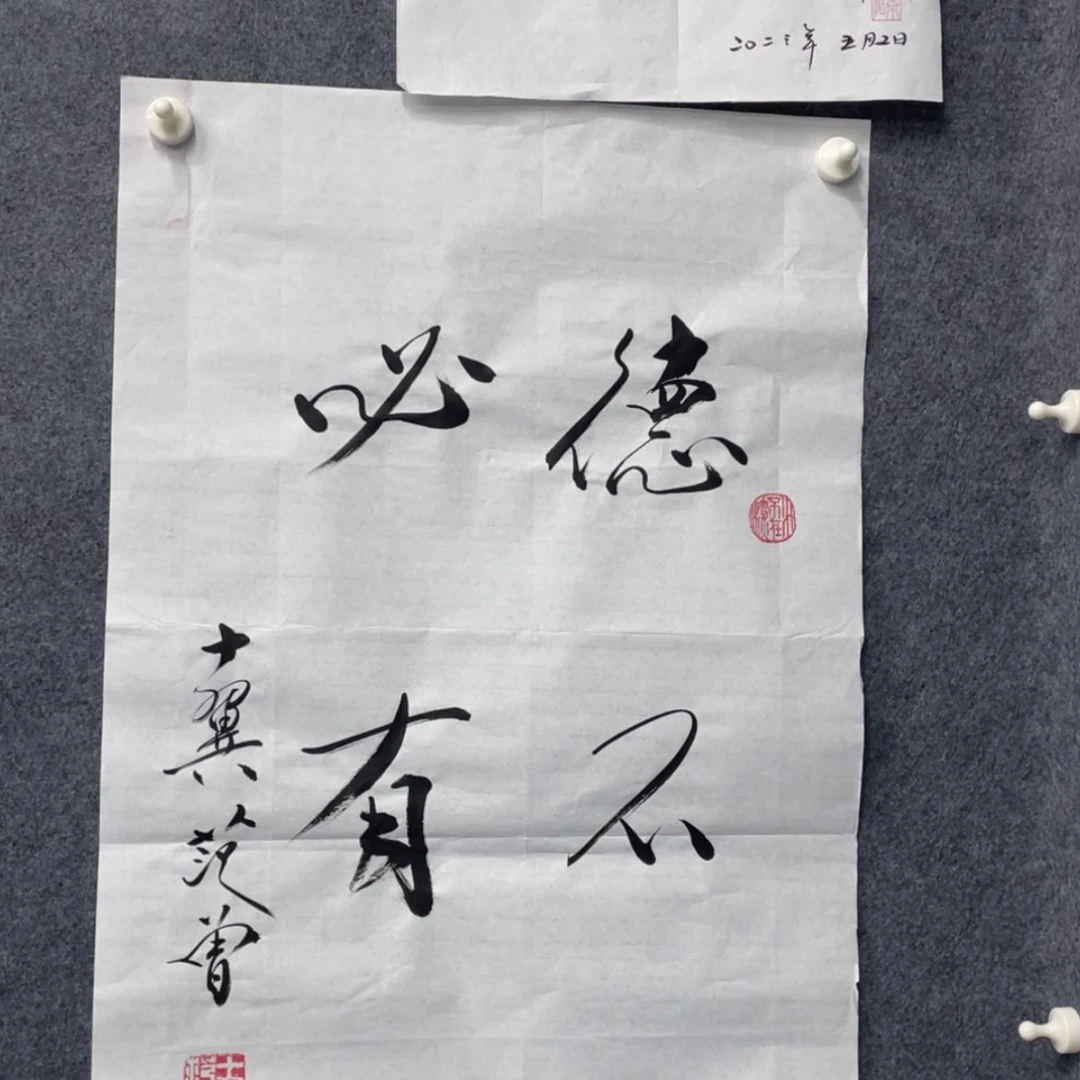 二〇二三年 五月2日
德不
必有
十翼范曾